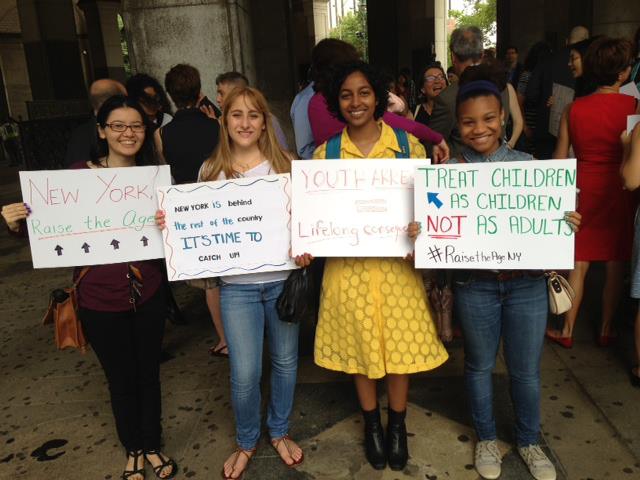 NEW YORK,
Raise the Age
NEW YORK IS behind
the rest of the country
IT'S TIME TO
CATCH UP!
YOUTH ARRE
=
Lifelong conseq
TREAT CHILDREN
AS CHILDREN
NOT AS ADULTS
#RaisetheAgeNY